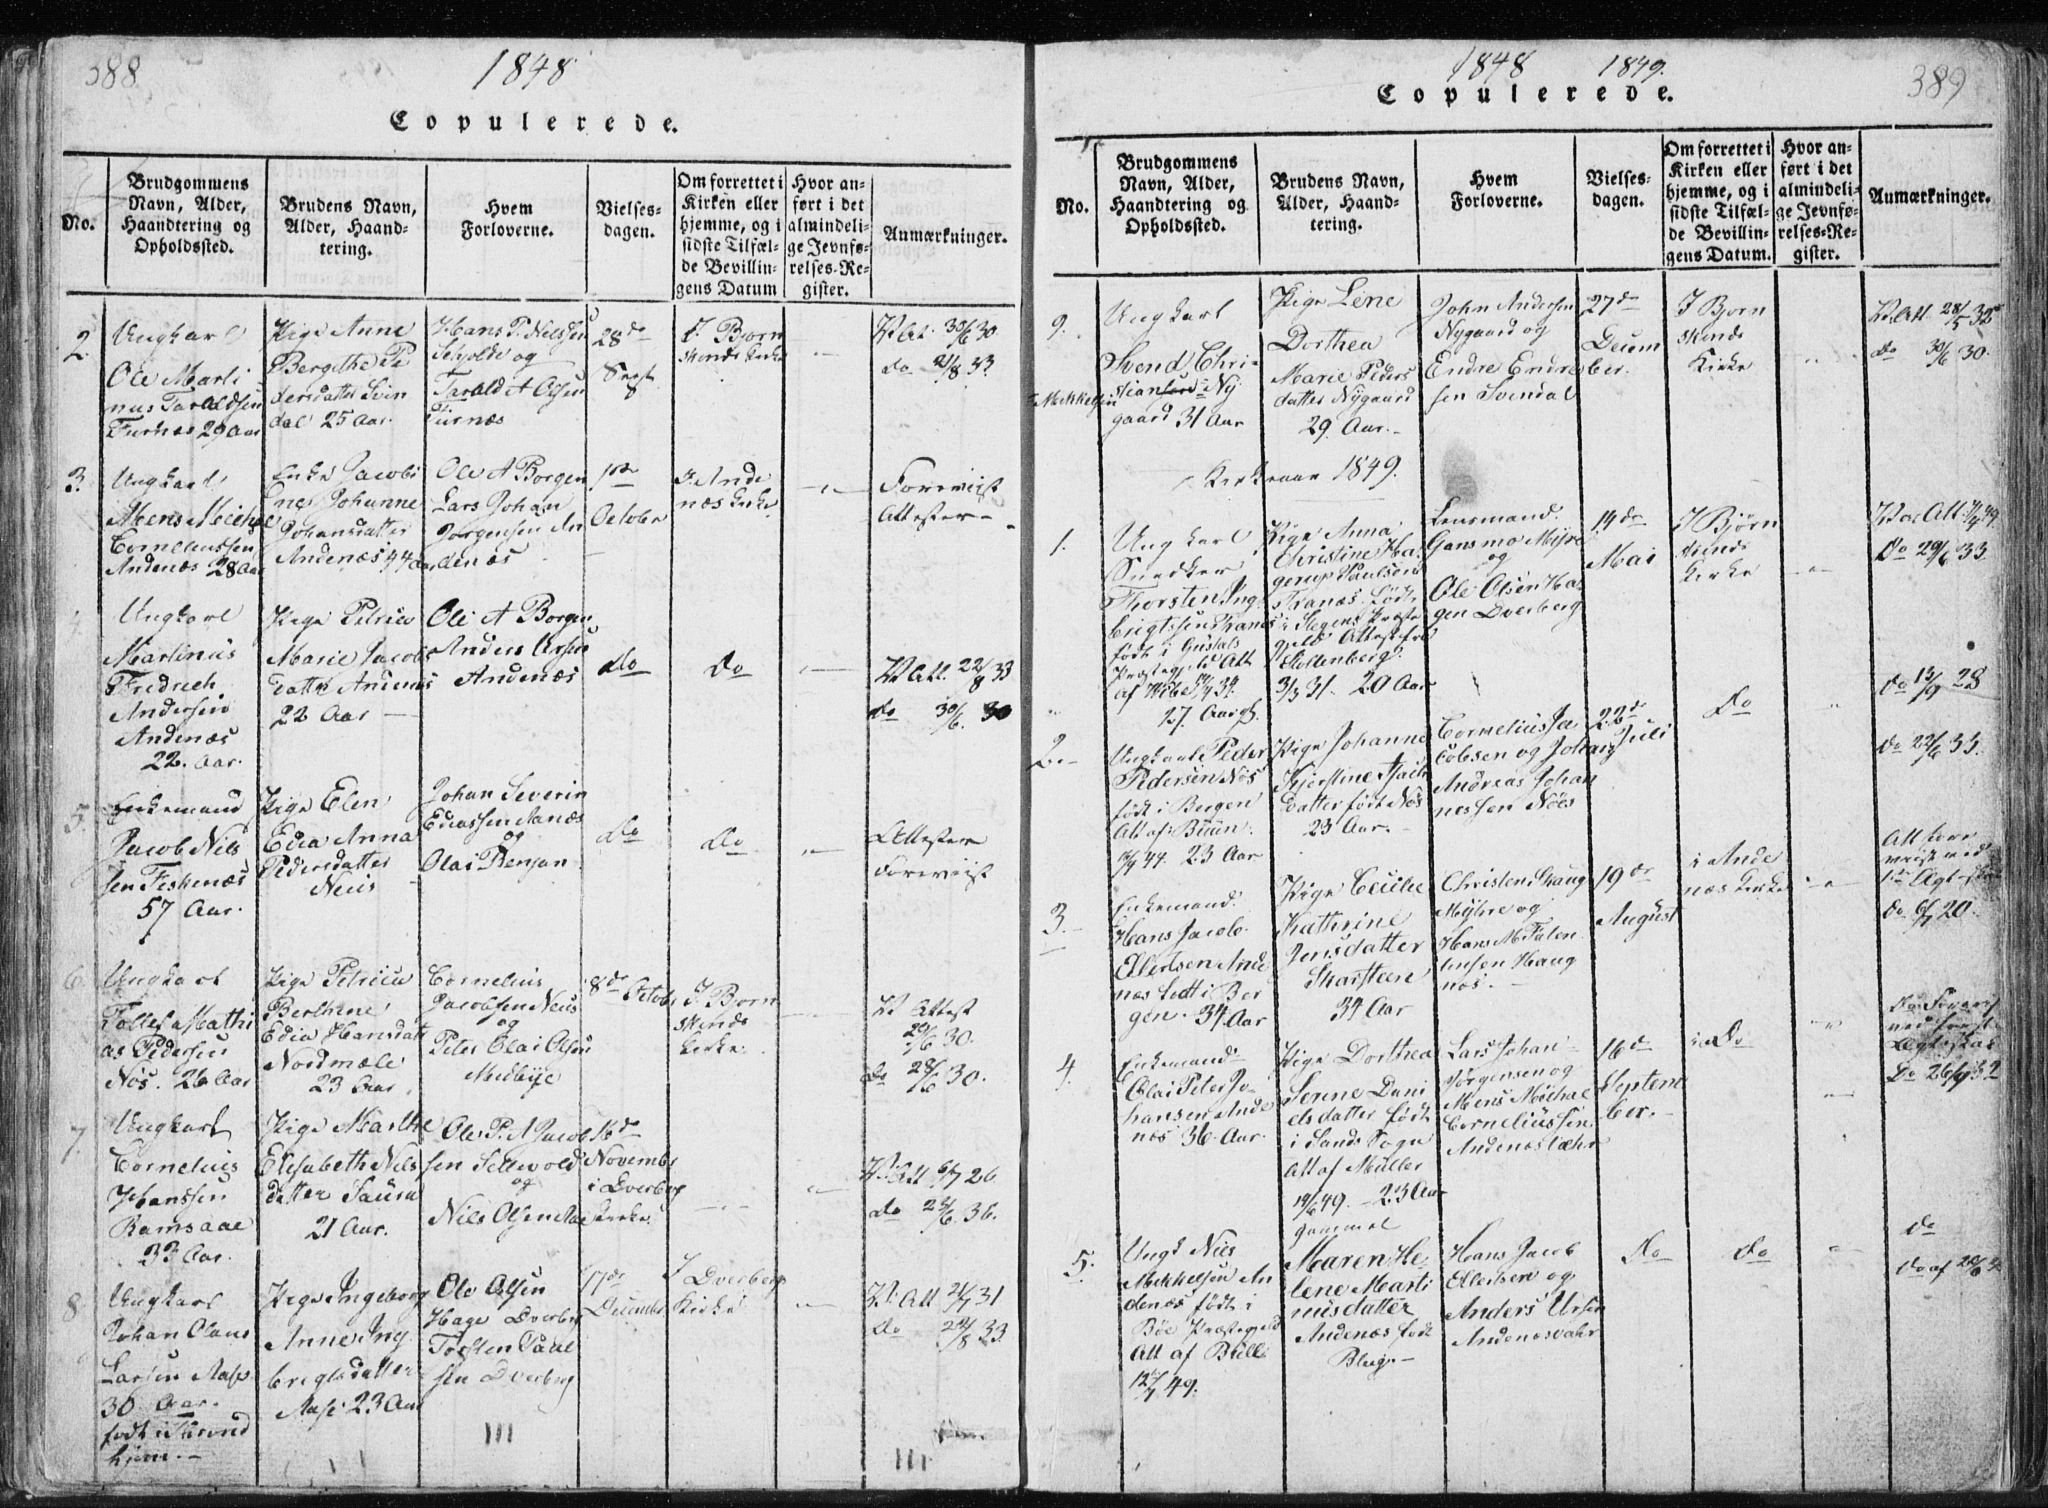 388
1848
Copulerede.
No.
Brudgommens Navn, Alder, Haandtering og Opholdssted.
Brudens Navn, Alder, Haandtering.
Hvem Forloverne.
Vielsesdagen.
Om forrettet i Kirken eller hjemme, og i sidste Tilfælde Bevillingens Datum
Hvor anført i det almindelige Jevnførelses-Register.
Anmærkninger.
2.
Ungkarl
Ole Marti
nus Taraldsen
Furnæs 29 Aar
Pige Anne
Bergithe Pe
dersdatter Svin
dal 25 Aar.
Hans P. Nielssen
og
Tarald A Olsen
Furnæs
28de
Sept
I Bjørn
skinds Kirke
V. At. 30/6 30
do 21/8 33.
3.
Ungkarl
Mens Michael
Corneliussen
Andenæs 28 Aar
Enke Jacobi
ne Johanne
Johansdatter
Andenæs 44 Aar
Ole A Borgen
Lars Johan
Jørgensen An
denæs
1ste
October
I Ande
næs Kirke
Foreviist
Attester
4.
Ungkarl
Martinus
Fredrich
Andersen
Andenæs
22. Aar.
Pige Petrica
Marie Jacobs
datter Andenæs
22 Aar
Ole A Borgen
Anders Ursin
Andenæs
do
do
V. Att. 22/8 33
do 30/6. 30
5.
Enkemand
Jacob Nils
sen Feskenæs
57 Aar.
Pige Elen
Edia Anna
Pedersdatter
Neiis
Johan Severin
Ediassen Aanæs
og
Olai Benjan
do
do
Attester
Foreviist
6.
Ungkarl
Tollef Mathi
as Pedersen
Nös. 26 Aar
Pige Petrica
Berthine
Edia Hansdatt
Nordmæle
23 Aar.
Cornelius
Jacobsen Neiis
og
Peter Olai Olsen
Medbye
8de October
I Bjørn
skinds
Kirke.
V. Attest
29/6 30.
do 28/6 30.
7.
Ungkarl
Cornelius
Hanssen
Ramsaae
33 Aar.
Pige Marthe
Elisabeth Nils
datter Saura
21 Aar.
Ole P. A Jacob
sen Sellevold
og
Nils Olsen Aae
16de
November
i Dverberg
Kirke.
V. Att 6/7 26
do 26/6. 36.
8.
Ungkarl
Johan Olaus
Larsen Aase
30 Aar.
født i Thrond
hjem.
Pige Ingeborg
Anne Ing
brigtsdatter
Aase 23 Aar
Ole Olsen
Hage Dverberg
Torsten Paul
sen Dverberg
17de
December
I Dverberg
Kirke
V. Att 21/7 31
do 24/8 33
389
1848 1849.
Copulerede.
No.
Brudgommens Navn, Alder, Haandtering og Opholdssted.
Brudens Navn, Alder, Haandtering.
Hvem Forloverne.
Vielsesdagen.
Om forrettet i Kirken eller hjemme, og i sidste Tilfælde Bevillingens Datum.
Hvor anført i det almindelige Jevnførelses-Register.
Anmærkninger.
9.
Ungkarl
Svend Chri
stian Ny
Mikkelsen
gaard 31 Aar
Pige Lene
Dorthea
Marie Peders
datter Nygaard
29. Aar.
John Andersen
Nygaard og
Endre Endre
sen Svendal
27de
Decem
ber.
I Bjorn
skinds
Kirke
V. Att. 28/5 32
do 30/6 30.
Kirkeaar 1849.
1.
Ungkarl
Snedker
Thorsten Ing
brigtsen Tranæs
født i
Præstegjeld Att
af Wibe 34.
27. Aar gl.
Pige Anna
Christine Ha
gerup Paulsen
Tranæs født
i Stegens Præste
gield Attest fra
Stoltenberg
31/3 31. 20 Aar
Lensmand
Gansmo Myre
og
Ole Olsen Ha
gen Dverberg
19de
Mai
I Bjørn
skinds
Kirke
Vac Att 49.
Do 29/6 33.
2.
Ungkarl Peder
Pedersen Nös
født i Bergen
Att af Buun.
44. 23 Aar
Pige Johanne
Kjerstine
datter født Nös
23 Aar.
Cornelius Ja
cobsen og Johan
Andreas Johan
nessen Nöes
22de
Juli
Do
do 13/9 28
do 22/6 33.
3.
Enkemand.
Hans Jacob
Ellertsen Ande
næs født i Ber
gen. 34 Aar
Pige Cecilie
Kathrine
Jensdatter
Skarsteen
34 Aar
Christen Skaug
Myhre og
Hans M Falen
tinsen Haug
næs.
19de
August
i Ande
næs Kirke
Att fore
viist ved
1ste Ægteskab
do 6/7 20.
4.
Enkemand
Olai Peter Jo
hansen Ande
næs 36 Aar.
Pige Dorthea
Serine Dani
elsdatter født
i Sands Sogn
Att af Müller
14/6 49. 23 Aar
gammel
Lars Johan
Jørgensen og
Mens Michael
Corneliussen
Andenæsvær
16de
Septem
ber.
i Do
do Forevist
ved første
Ægteskab
Do 26/9 32
5.
Ungk Nils
Mikkelsen An
denæs født i
Böe Præstegjeld
Att af Bull
12/7 49.
Maren He
lene Marti
nusdatter
Andenæs født
Bleig.
Hans Jacob
Ellertsen og
Anders Ursin
Andenæsvær
Do
Do
do
do af